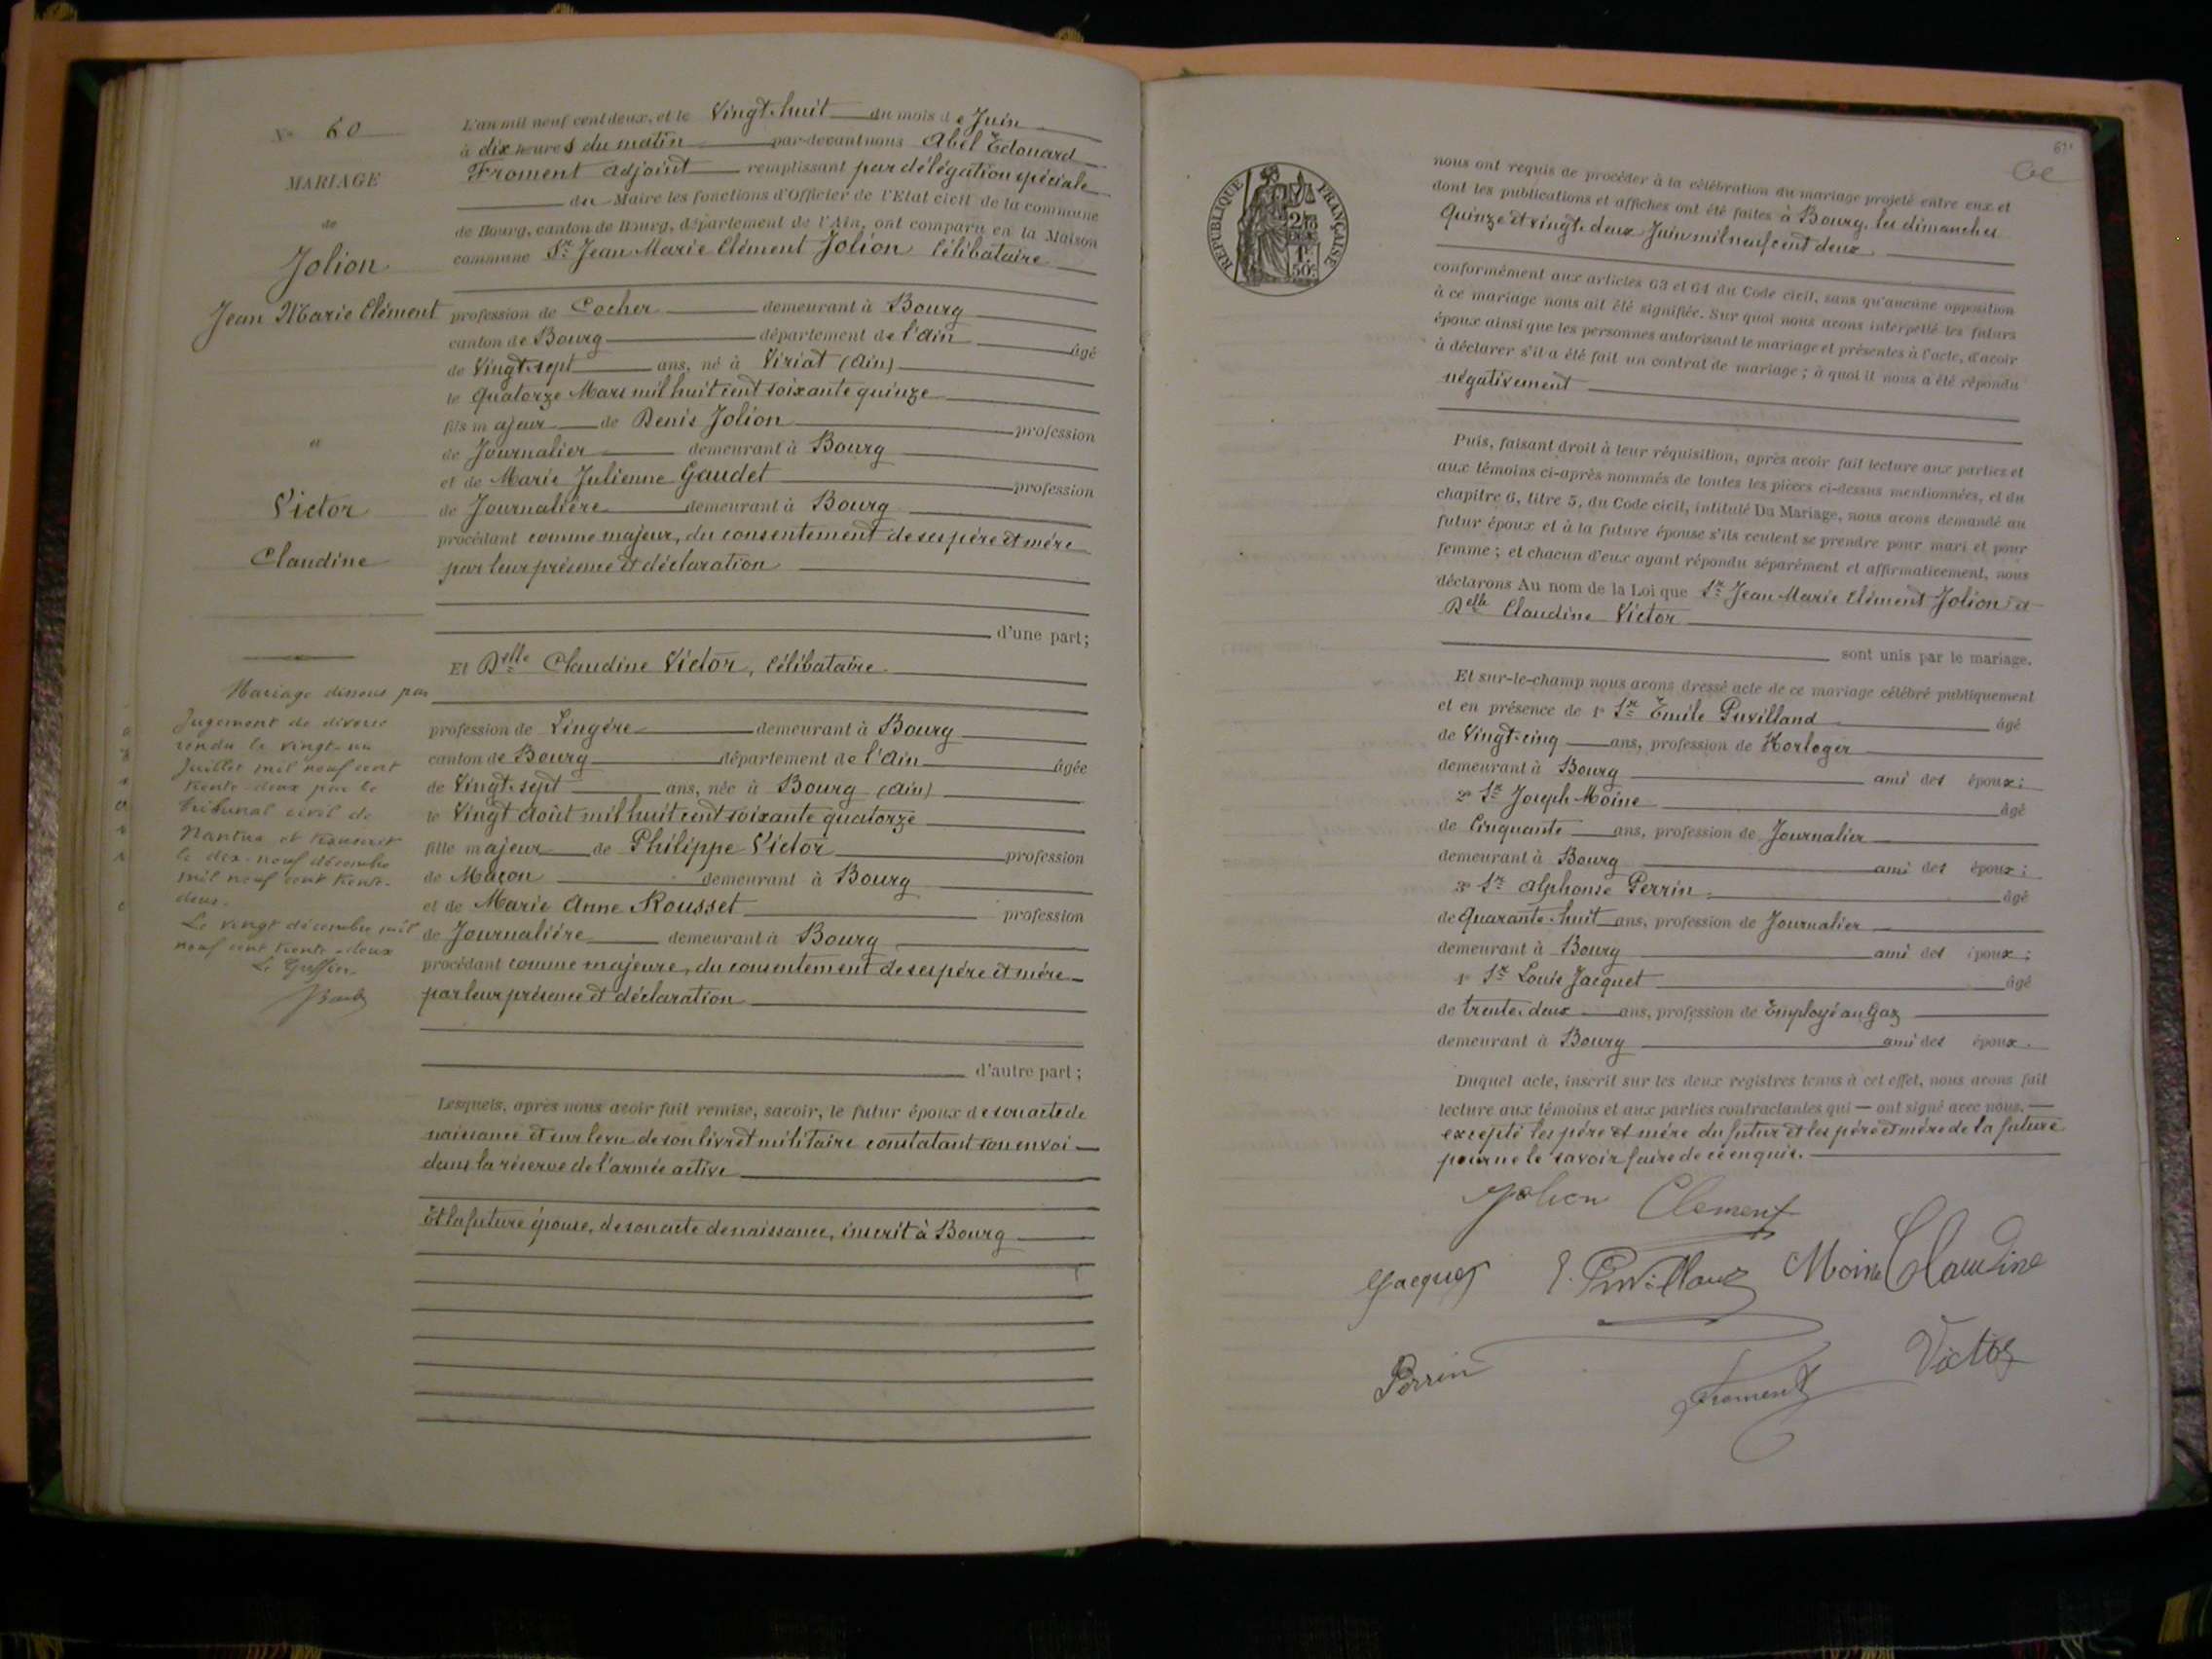 N° 60
MARIAGE
de
Jolion
Jean Marie Clément
et
Victor
Claudine
Mariage dissous par
Jugement de divorce
rendu le vingt-un
Juillet mil neuf cent
trente-deux par le
tribunal civil de
Nantua et transcrit
le dix-neuf décembre
mil neuf cent trente-
deux.
Le vingt décembre mil
neuf cent trente-deux
Le Greffier
L'an mil neuf cent deux, et le Vingt-huit du mois de Juin
à dix heures du matin par-devant nous Abel Edouard
Froment Adjoint remplissant par délégation spéciale
du Maire les fonctions d'Officier de l'Etat civil de la commune
de Bourg, canton de Bourg, département de l'Ain, ont comparu en la Maison
commune Sr Jean Marie Clément Jolion Célibataire
profession de Cocher demeurant à Bourg
canton de Bourg département de l'Ain âgé
de Vingt-sept ans, né à Viriat (Ain)
le Quatorze Mars mil huit cent soixante quinze
fils majeur de Denis Jolion profession
de Journalier demeurant à Bourg
et de Marie Julienne Gaudet profession
de Journalière demeurant à Bourg
procédant comme majeur, du consentement de ses père et mère
par leur présence et déclaration
d'une part;
Et Delle Claudine Victor, Célibataire
profession de Lingère demeurant à Bourg
canton de Bourg département de l'Ain âgée
de Vingt-sept ans, née à Bourg (Ain)
le Vingt Août mil huit cent soixante quatorze
fille majeur de Philippe Victor profession
de Maçon demeurant à Bourg
et de Marie Anne Rousset profession
de Journalière demeurant à Bourg
procédant comme majeure, du consentement de ses père et mère
par leur présence et déclaration
d'autre part;
Lesquels, après nous avoir fait remise, savoir, le futur époux de son acte de
naissance et sur le vu de son livret militaire constatant son envoi
dans la réserve de l'armée active
Et la future épouse, de son acte de naissance, inscrit à Bourg
61
RÉPUBLIQUE FRANÇAISE
nous ont requis de procéder à la célébration du mariage projeté entre eux et
dont les publications et affiches ont été faites à Bourg, les dimanches
Quinze et vingt-deux Juin mil neuf cent deux
conformément aux articles 63 et 64 du Code civil, sans qu'aucune opposition
à ce mariage nous ait été signifiée. Sur quoi nous avons interpellé les futurs
époux ainsi que les personnes autorisant le mariage et présentes à l'acte, d'avoir
à déclarer s'il a été fait un contrat de mariage; à quoi il nous a été répondu
négativement
Puis, faisant droit à leur réquisition, après avoir fait lecture aux parties et
aux témoins ci-après nommés de toutes les pièces ci-dessus mentionnées, et du
chapitre 6, titre 5, du Code civil, intitulé Du Mariage, nous avons demandé au
futur époux et à la future épouse s'ils veulent se prendre pour mari et pour
femme; et chacun d'eux ayant répondu séparément et affirmativement, nous
déclarons Au nom de la Loi que Sr Jean Marie Clément Jolion et
Delle Claudine Victor
sont unis par le mariage.
Et sur-le-champ nous avons dressé acte de ce mariage célébré publiquement
et en présence de 1° Sr Émile Puvilland âgé
de Vingt-cinq ans, profession de Horloger
demeurant à Bourg ami des époux;
2° Sr Joseph Moine âgé
de Cinquante ans, profession de Journalier
demeurant à Bourg ami des époux;
3° Sr Alphonse Perrin âgé
de Quarante-huit ans, profession de Journalier
demeurant à Bourg ami des époux;
4° Sr Louis Jacquet âgé
de trente-deux ans, profession de Employé au Gaz
demeurant à Bourg ami des époux.
Duquel acte, inscrit sur les deux registres tenus à cet effet, nous avons fait
lecture aux témoins et aux parties contractantes qui — ont signé avec nous. —
excepté les père et mère du futur et les père et mère de la future
pour ne le savoir faire de ce enquis.
Jolion Clement
Jacquet E. Puvilland Moine Claudine
Perrin Froment Victor